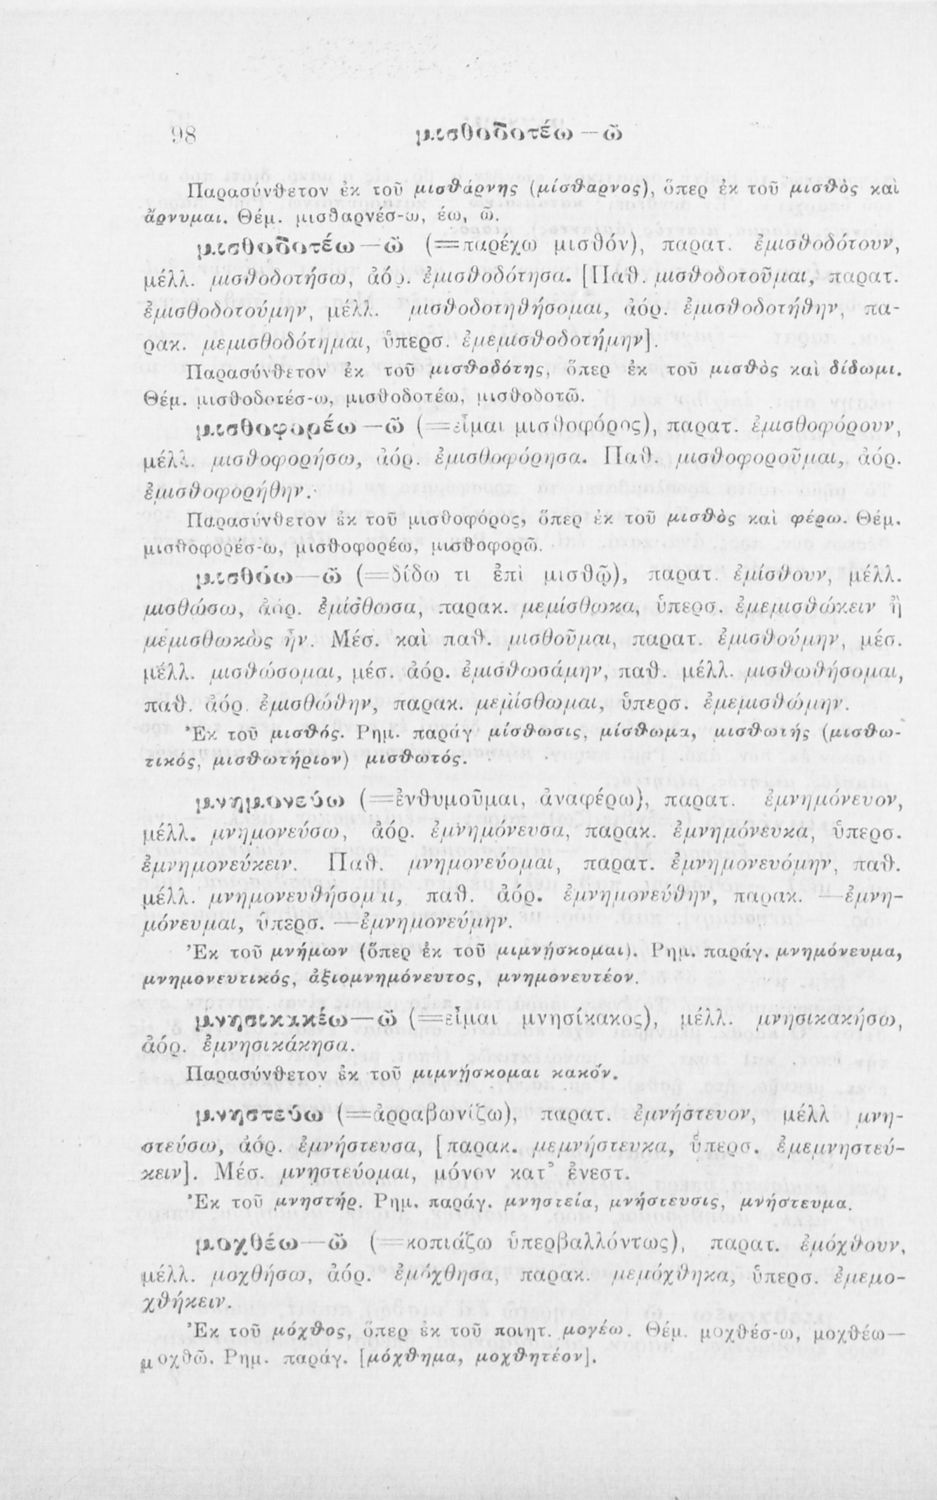 98 μισθοδοτέω — ῶ
Παρασύνθετον ἐκ τοῦ μισθάρνης (μίσθαρνος), ὅπερ ἐκ τοῦ μισθὸς καὶ
ἄρνυμαι. Θέμ. μισθαρνέσ-ω, έω, ῶ.
μισθοδοτέω — ῶ (=παρέχω μισθόν), παρατ. ἐμισθοδότουν,
μέλλ. μισθοδοτήσω, ἀόρ. ἐμισθοδότησα. [Παθ. μισθοδοτοῦμαι, παρατ.
ἐμισθοδοτούμην, μέλλ. μισθοδοτηθήσομαι, ἀόρ. ἐμισθοδοτήθην, πα-
ρακ. μεμισθοδότημαι, ὑπερσ. ἐμεμισθοδοτήμην].
Παρασύνθετον ἐκ τοῦ μισθοδότης, ὅπερ ἐκ τοῦ μισθὸς καὶ δίδωμι.
Θέμ. μισθοδοτέσ-ω, μισθοδοτέω, μισθοδοτῶ.
μισθοφορέω — ῶ (=εἶμαι μισθοφόρος), παρατ. ἐμισθοφόρουν,
μέλλ. μισθοφορήσω, ἀόρ. ἐμισθοφόρησα. Παθ. μισθοφοροῦμαι, ἀόρ.
ἐμισθοφορήθην.
Παρασύνθετον ἐκ τοῦ μισθοφόρος, ὅπερ ἐκ τοῦ μισθὸς καὶ φέρω. Θέμ.
μισθοφορέσ-ω, μισθοφορέω, μισθοφορῶ.
μισθόω — ῶ (=δίδω τι ἐπὶ μισθῷ), παρατ. ἐμίσθουν, μέλλ.
μισθώσω, ἀόρ. ἐμίσθωσα, παρακ. μεμίσθωκα, ὑπερσ. ἐμεμισθώκειν ἢ
μεμισθωκὼς ἦν. Μέσ. καὶ παθ. μισθοῦμαι, παρατ. ἐμισθούμην, μέσ.
μέλλ. μισθώσομαι, μέσ. ἀόρ. ἐμισθωσάμην, παθ. μέλλ. μισθωθήσομαι,
παθ. ἀόρ. ἐμισθώθην, παρακ. μεμίσθωμαι, ὑπερσ. ἐμεμισθώμην.
Ἐκ τοῦ μισθός. Ρημ. παράγ μίσθωσις, μίσθωμα, μισθωτής (μισθω-
τικός, μισθωτήριον) μισθωτός.
μνημονεύω (=ἐνθυμοῦμαι, ἀναφέρω), παρατ. ἐμνημόνευον,
μέλλ. μνημονεύσω, ἀόρ. ἐμνημόνευσα, παρακ. ἐμνημόνευκα, ὑπερσ.
ἐμνημονεύκειν. Παθ. μνημονεύομαι, παρατ. ἐμνημονευόμην, παθ.
μέλλ. μνημονευθήσομαι, παθ. ἀόρ. ἐμνημονεύθην, παρακ. —ἐμνη-
μόνευμαι, ὑπερσ. —ἐμνημονεύμην.
Ἐκ τοῦ μνήμων (ὅπερ ἐκ τοῦ μιμνήσκομαι). Ρημ. παράγ. μνημόνευμα,
μνημονευτικός, ἀξιομνημόνευτος, μνημονευτέον.
μνησικακέω — ῶ (=εἶμαι μνησίκακος), μέλλ. μνησικακήσω,
ἀόρ. ἐμνησικάκησα.
Παρασύνθετον ἐκ τοῦ μιμνήσκομαι κακόν.
μνηστεύω (=ἀρραβωνίζω), παρατ. ἐμνήστευον, μέλλ μνη-
στεύσω, ἀόρ. ἐμνήστευσα, [παρακ. μεμνήστευκα, ὑπερσ. ἐμεμνηστεύ-
κειν]. Μέσ. μνηστεύομαι, μόνον κατ' ἐνεστ.
Ἐκ τοῦ μνηστήρ. Ρημ. παράγ. μνηστεία, μνήστευσις, μνήστευμα.
μοχθέω — ῶ (=κοπιάζω ὑπερβαλλόντως), παρατ. ἐμόχθουν,
μέλλ. μοχθήσω, ἀόρ. ἐμόχθησα, παρακ. μεμόχθηκα, ὑπερσ. ἐμεμο-
χθήκειν.
Ἐκ τοῦ μόχθος, ὅπερ ἐκ τοῦ ποιητ. μογέω. Θέμ. μοχθέσ-ω, μοχθέω—
μοχθῶ. Ρημ. παράγ. [μόχθημα, μοχθητέον].